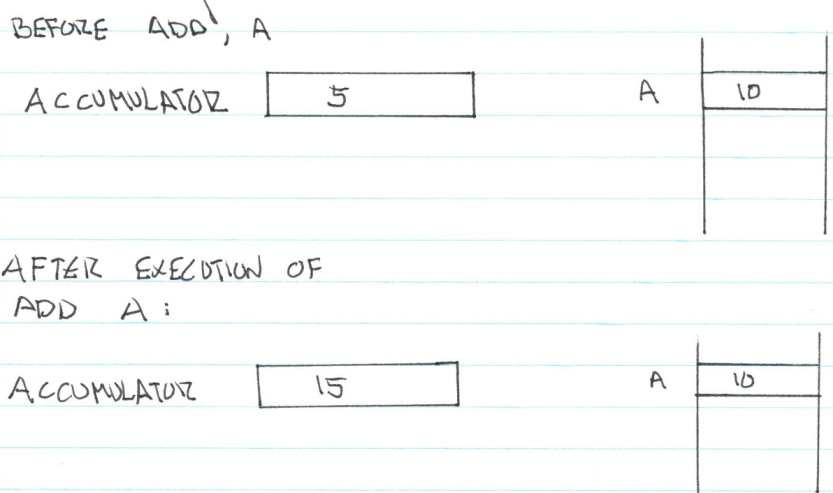 BEFORE ADD, A
ACCUMULATOR 5 A 10
AFTER EXECUTION OF
ADD A:
ACCUMULATOR 15 A 10